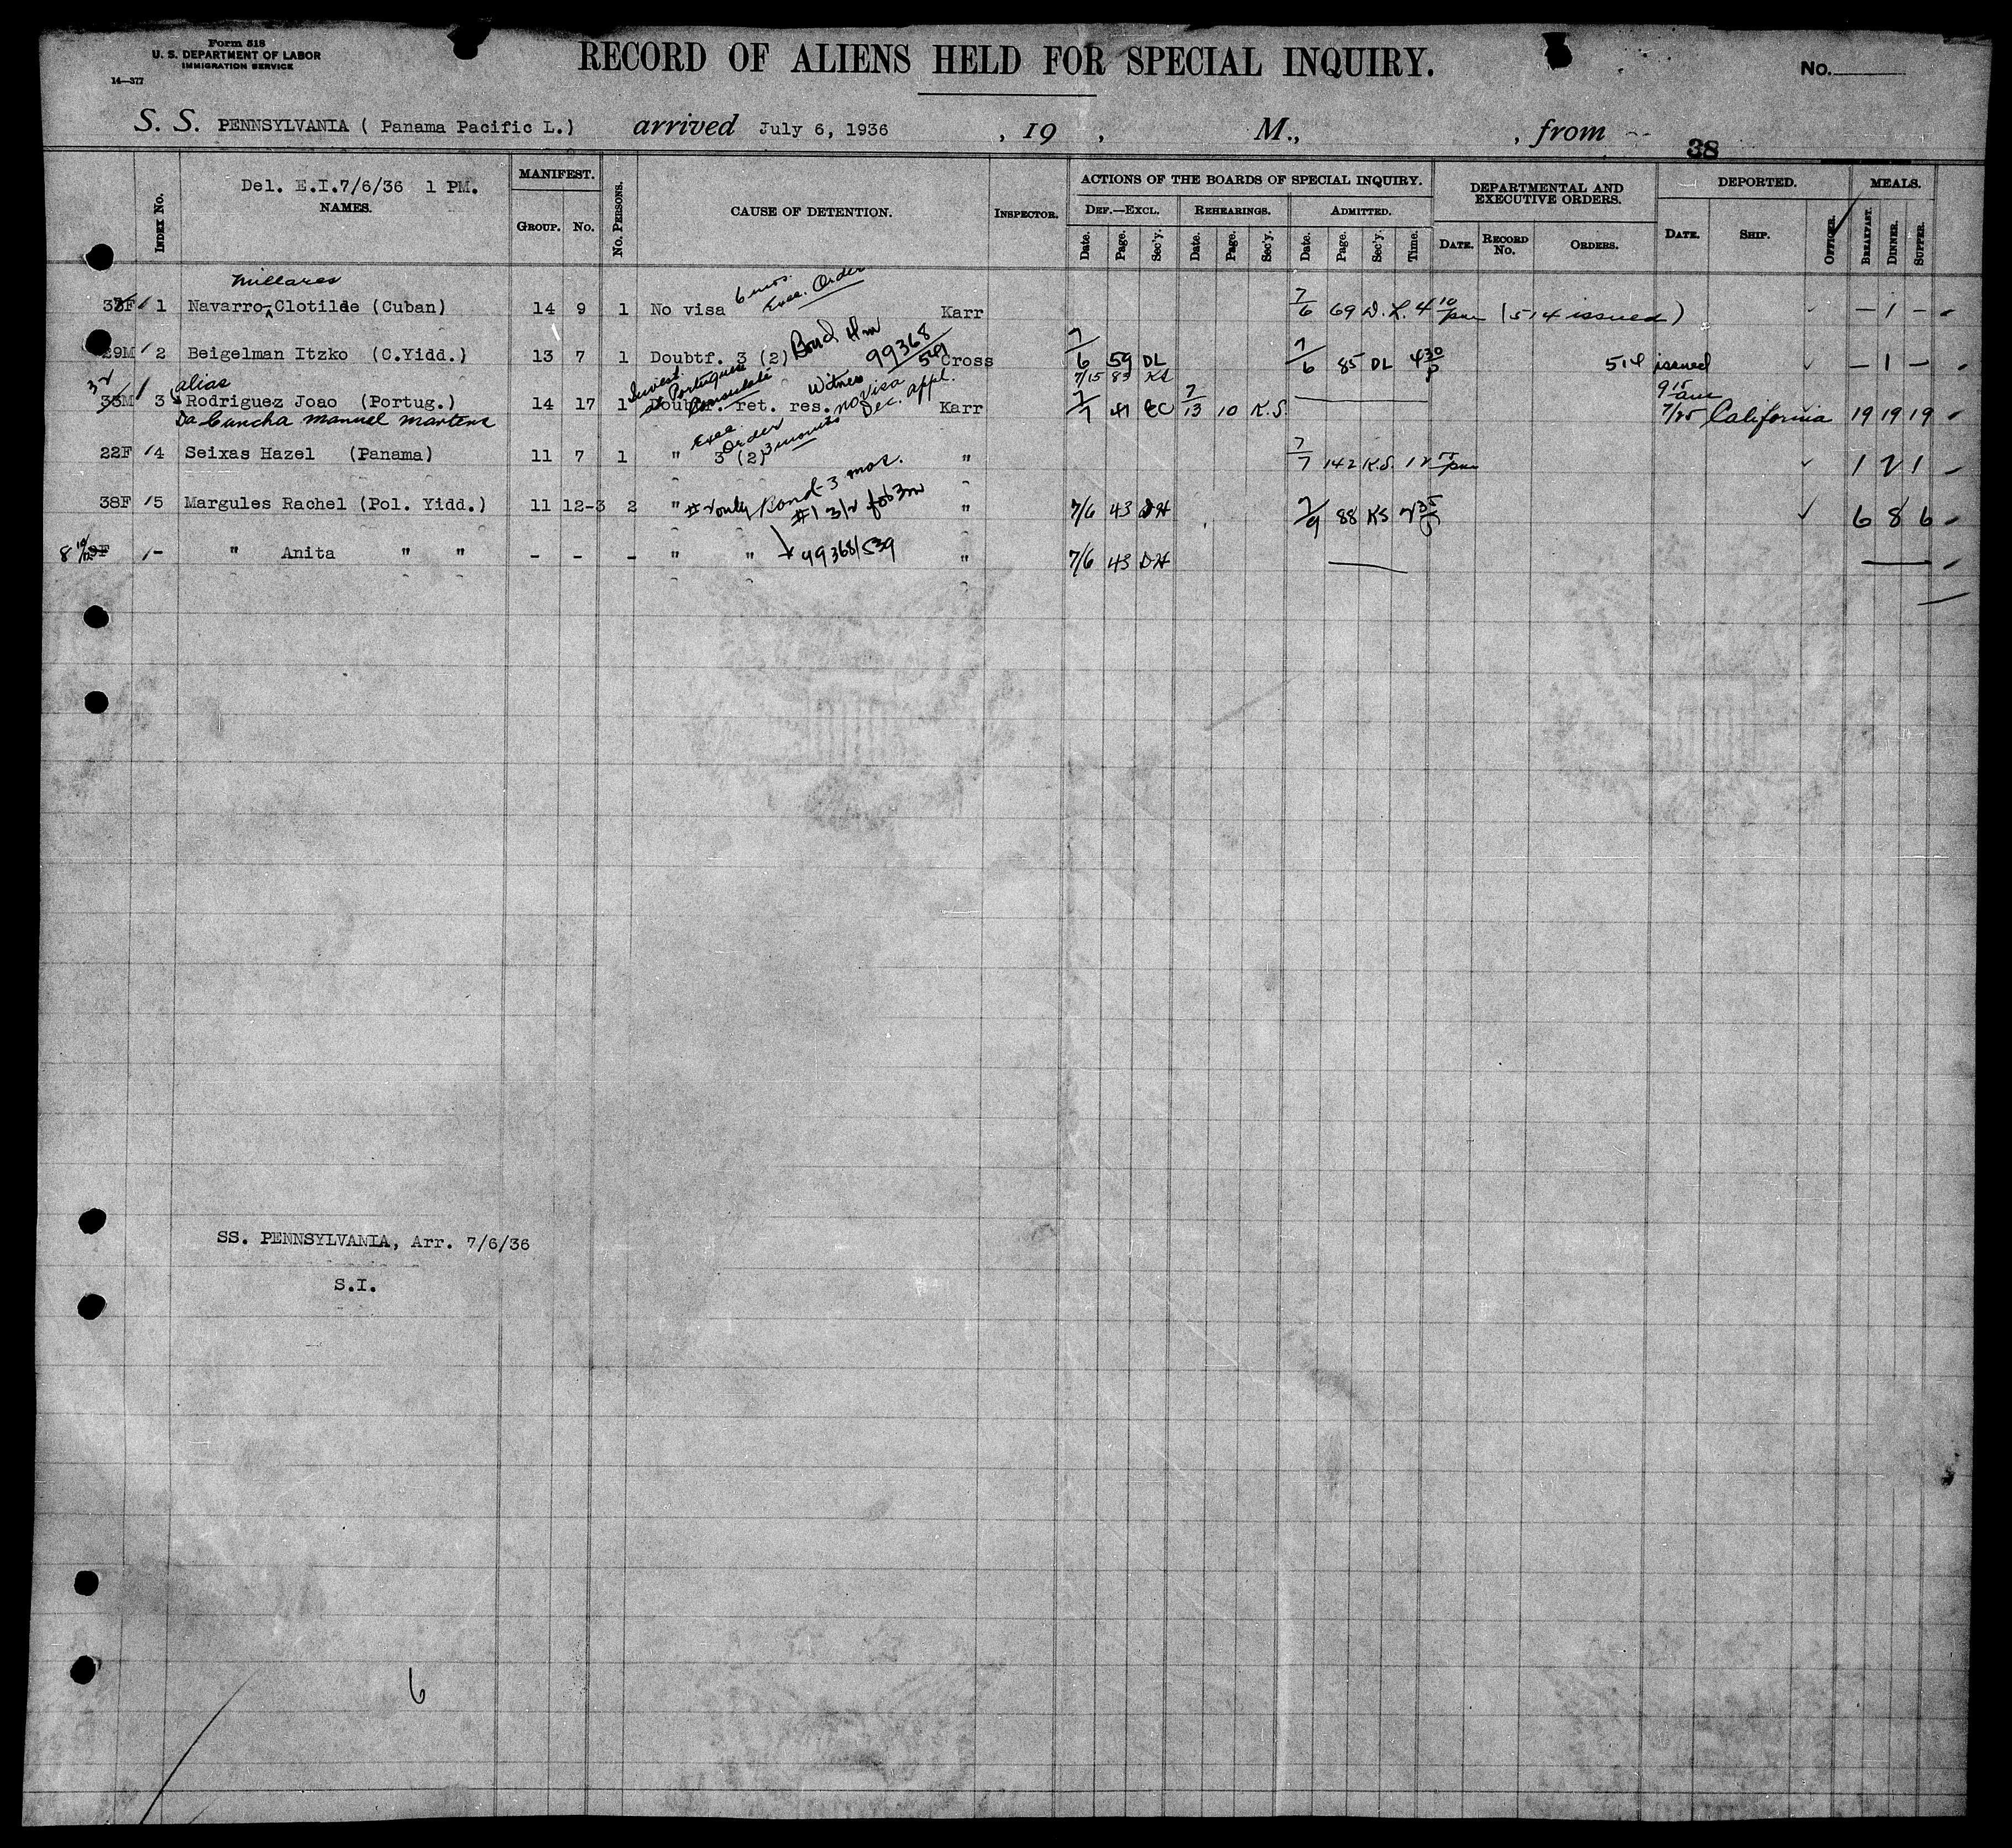 Form 518
U. S. DEPARTMENT OF LABOR
IMMIGRATION SERVICE
14—377
RECORD OF ALIENS HELD FOR SPECIAL INQUIRY.
No.
S. S. PENNSYLVANIA ( Panama Pacific L.) arrived July 6, 1936 , 19 , M., , from
38
INDEX No.
Del. E.I.7/6/36 1 PM.
NAMES.
MANIFEST.
GROUP. No.
No. PERSONS.
CAUSE OF DETENTION.
INSPECTOR.
ACTIONS OF THE BOARDS OF SPECIAL INQUIRY.
DEF.—EXCL. REHEARINGS. ADMITTED.
Date. Page. Sec'y. Date. Page. Sec'y. Date. Page. Sec'y. Time.
DEPARTMENTAL AND
EXECUTIVE ORDERS.
DATE. RECORD No. ORDERS.
DEPORTED.
DATE. SHIP. OFFICER.
MEALS.
BREAKFAST. DINNER. SUPPER.
Millares
6 mos. Exec. Order
33F 1 Navarro-Clotilde (Cuban) 14 9 1 No visa Karr 7/6 69 D.L. 4 10 pm (514 issued) — 1 —
Bond Hm 99368/549
29M 2 Beigelman Itzko (C.Yidd.) 13 7 1 Doubtf. 3 (2) Cross 7/6 59 DL 7/6 85 DL 4 30 P 514 issued — 1 —
32 alias Invest. at Portuguese Consulate Witness no visa Dec. appl. 7/15 83 KS 9 15 am
33M 3 Rodriguez Joao (Portug.) 14 17 1 Doubtf. ret. res. Karr 7/7 41 EC 7/13 10 K.S. 7/25 California 19 19 19
Da Cuncha Manuel Martens
Exec. Order 3 months
22F 4 Seixas Hazel (Panama) 11 7 1 " 3 (2) " 7/7 142 K.S. 12 pm 1 2 1
#2 only Bond-3 mos.
38F 5 Margules Rachel (Pol. Yidd.) 11 12-3 2 " #1 3/2 " 7/6 43 DH 7/9 88 KS 2 35 6 8 6
8 - " Anita " " - - - " " 99368/539 " 7/6 43 DH
SS. PENNSYLVANIA, Arr. 7/6/36
S.I.
6